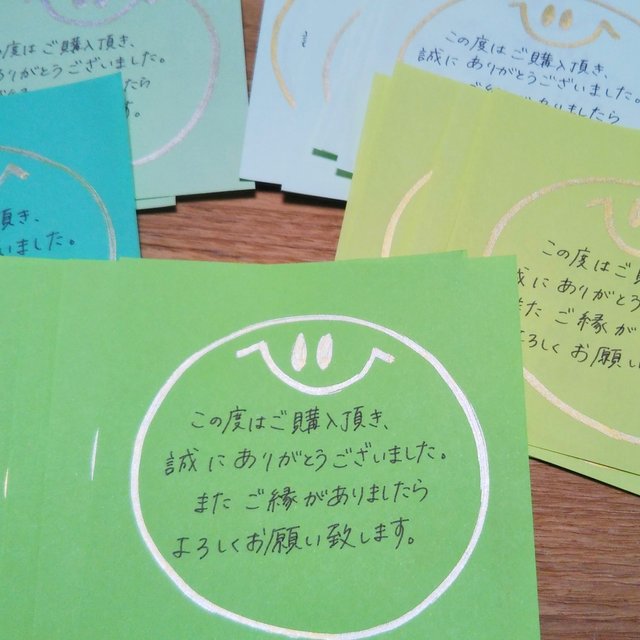 この度はご購入頂き、
りがとうございました。
ありましたら
す。
この度はご購入頂き、
誠にありがとうございました。
ご縁がありましたら
頂き、
いました。
この度はご購
誠にありがとう
またご縁が
よろしくお願い
この度はご購入頂き、
誠にありがとうございました。
またご縁がありましたら
よろしくお願い致します。